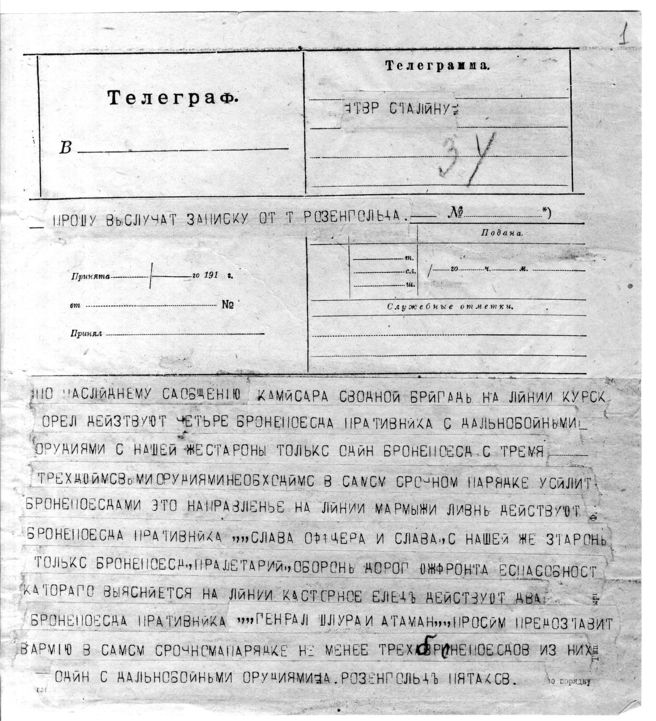 1
Телеграф.
В
Телеграмма.
ТВР СТАЛЙНУ=
3У
ПРОШУ ВЬСЛУЧАТ ЗАПИСКУ ОТ Т РОЗЕНГОЛЬДА.
№ *)
Подана.
Принята го 191 г.
т.
сл.
ш.
го ч. м.
от №
Служебные отметки.
Принял
ПО ПАСЛЙДНЕМУ САОБЩЕНІЮ КАМЙСАРА СВОДНОЙ БРЙГАДЬ НА ЛЙНИИ КУРСК
ОРЕЛ ДЕЙЗТВУЮТ ЧЕТЬРЕ БРОНЕПОЕСДА ПРАТИВНЙКА С ДАЛЬНОБОЙНЬМИ
ОРУДИЯМИ С НАШЕЙ ЖЕСТАРОНЫ ТОЛЬКС ОДЙН БРОНЕПОЕСД С ТРЕМЯ
ТРЕХДЮЙМСВЬМИОРУДИЯМИНЕОБХОДЙМС В САМСМ СРОЧНОМ ПАРЯДКЕ УСЙЛИТ
БРОНЕПОЕСДАМИ ЭТО НАПРАВЛЕНЬЕ НА ЛЙНИИ МАРМЫЖИ ЛИВНЬ ДЕЙСТВУЮТ
БРОНЕПОЕСДА ПРАТИВНЙКА ,,,,СЛАВА ОФІЦЕРА И СЛАВА,,С НАШЕЙ ЖЕ ЗТАРОНЬ
ТОЛЬКС БРОНЕПОЕСД,,ПРАЛЕТАРИЙ,,ОБОРОНЬ ДОРОГ ЮЖФРОНТА БСПАСОБНОСТ
КАТОРАГО ВЫЯСНЙЕТСЯ НА ЛЙНИИ КАСТОРНОЕ ЕЛЕДЪ ДЕЙСТВУЮТ ДВА
БРОНЕПОЕСДА ПРАТИВНЙКА ,,,,ГЕНРАЛ ШЛУРАИ АТАМАН,,,,ПРОСЙМ ПРЕДОЗТАВИТ
ВАРМІЮ В САМСМ СРОЧНОМАПАРЯДКЕ НЕ МЕНЕЕ ТРЕХ БРОНЕПОЕСДОВ ИЗ НИХ
ОДЙН С ДАЛЬНОБОЙНЬМИ ОРУДИЯМИ РОЗЕНГОЛЬДЪ ПЯТАКСВ.
по порядку